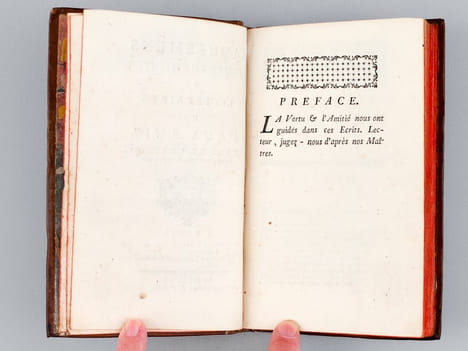 PREFACE.
LA Vertu & l'Amitié nous ont
guidés dans ces Ecrits. Lec-
teur, jugez-nous d'après nos Maî-
tres.